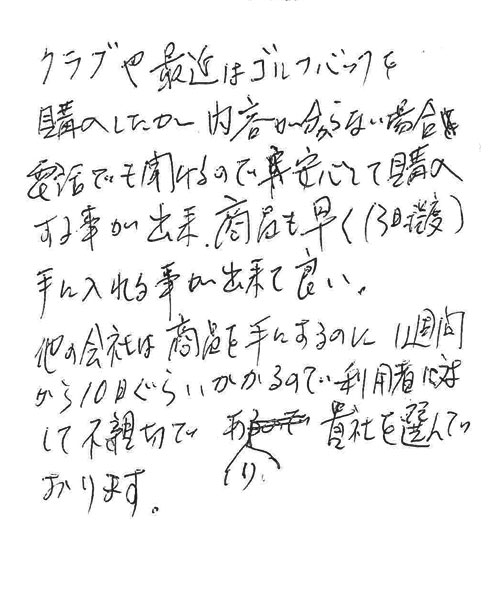 クラブや最近はゴルフバックを
購入したが 内容が分らない場合は
電話でも聞けるので安心して購入
する事が出来、商品も早く(3日程度)
手に入れる事が出来て良い。
他の会社は商品を手にするのに1週間
から10日ぐらいかかるので利用者に対
して不親切で あり、貴社を選んで
おります。